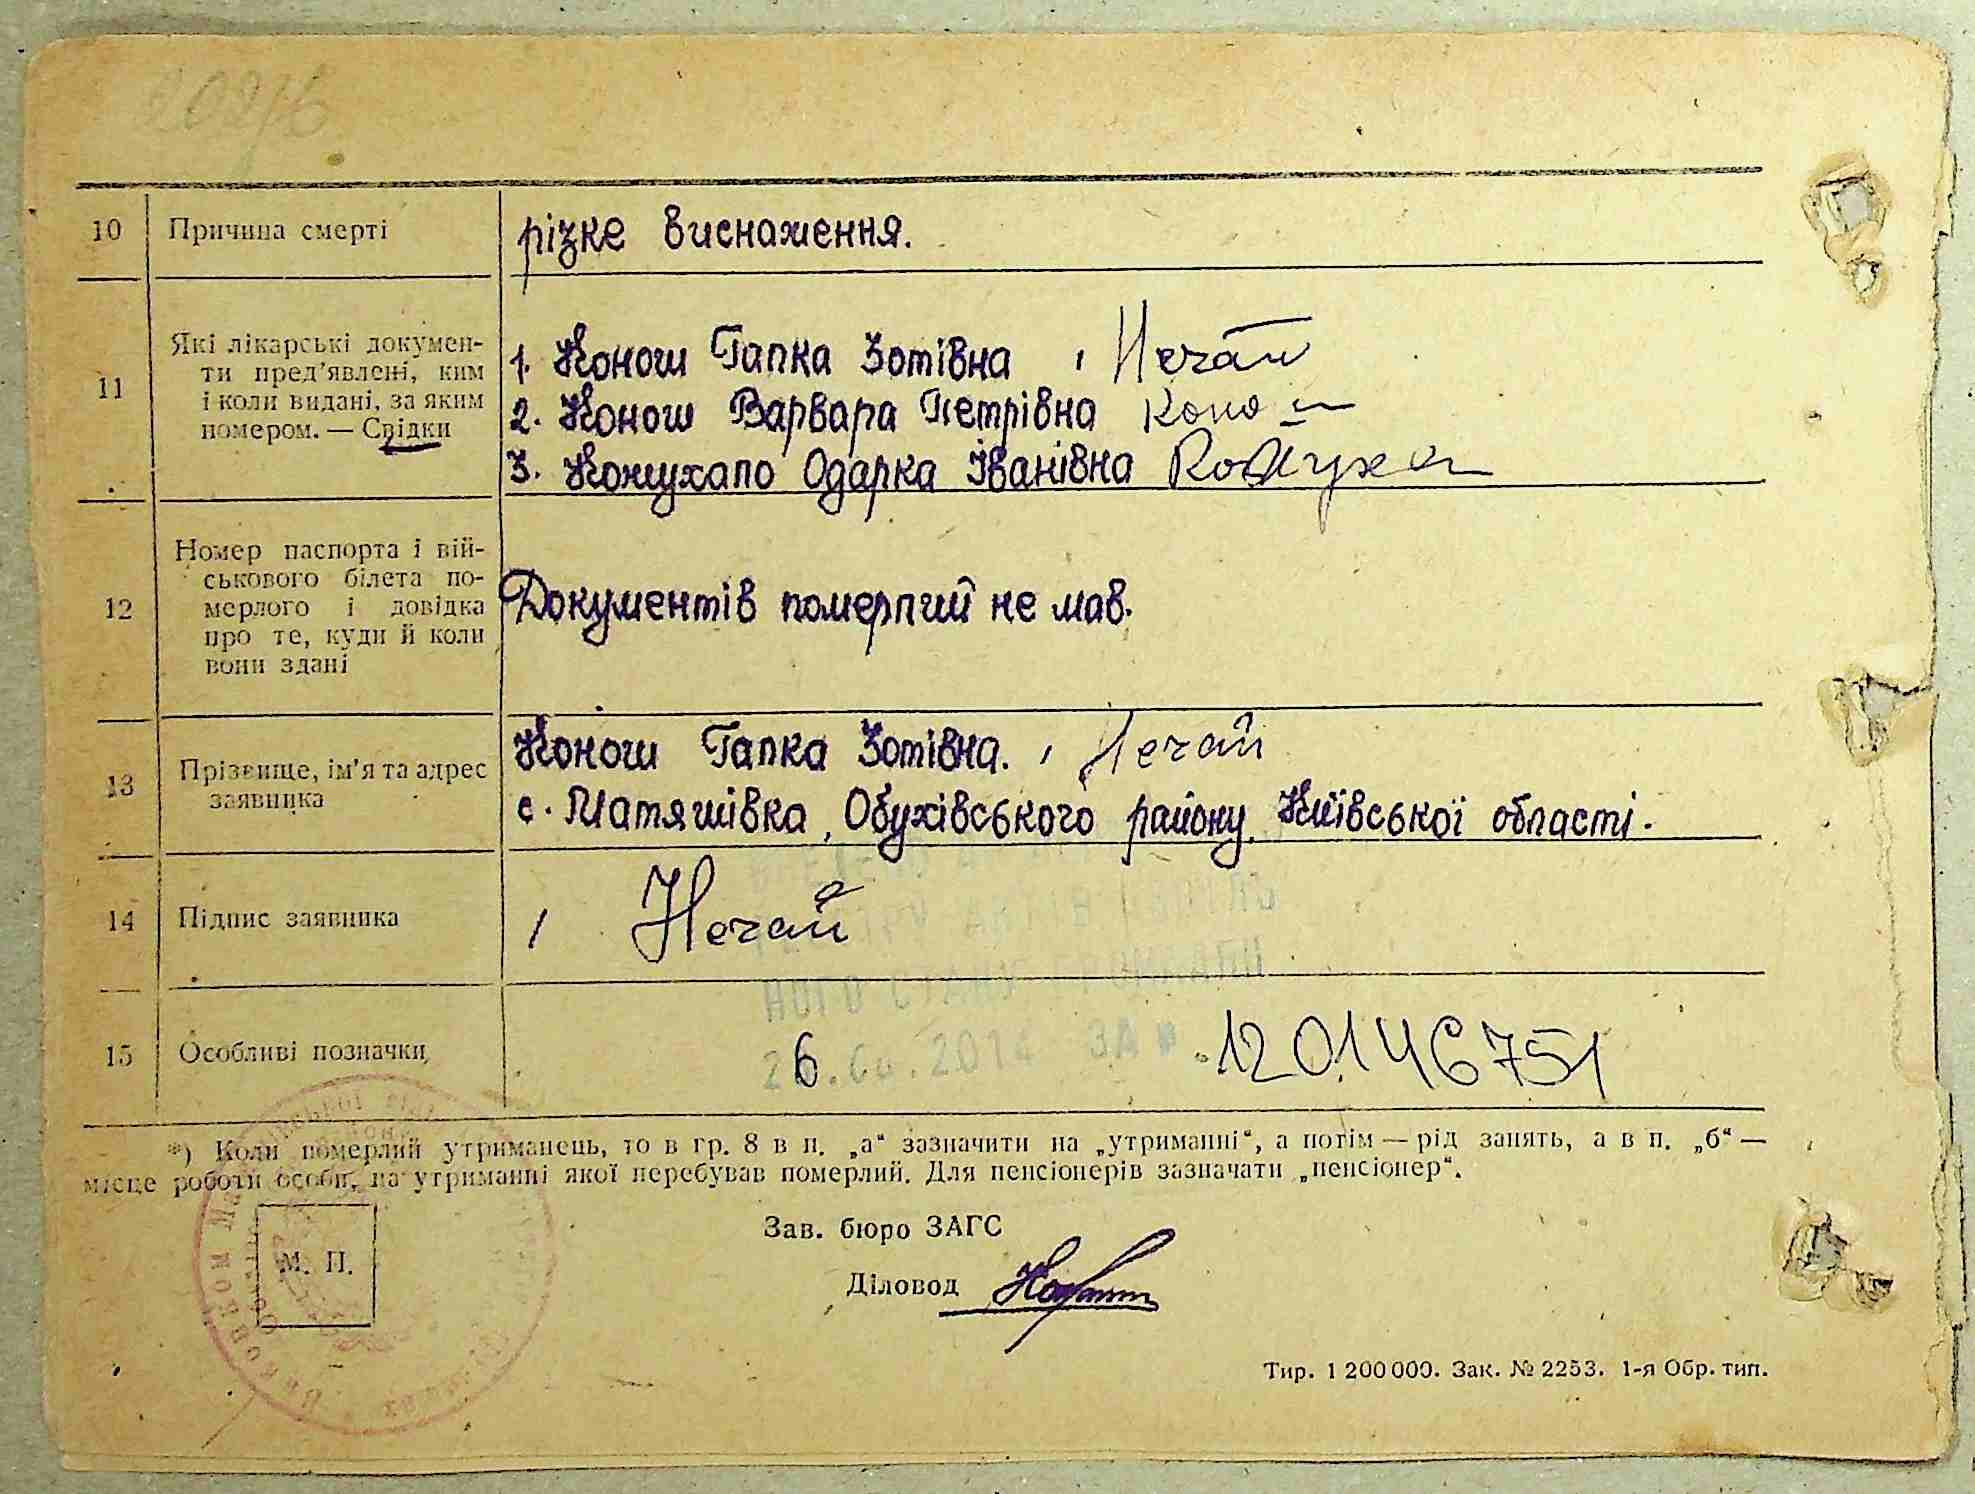 10 Причина смерті різке виснаження.
11 Які лікарські докумен-
ти пред'явлені, ким
і коли видані, за яким
номером. — Свідки
1. Конош Гапка Зотівна , Нечай
2. Конош Варвара Петрівна Коно
3. Кожухало Одарка Іванівна Кожуха
12 Номер паспорта і вій-
ськового білета по-
мерлого і довідка
про те, куди й коли
вони здані
Документів померлий не мав.
13 Прізвище, ім'я та адрес
заявника
Конош Гапка Зотівна. , Нечай
с. Матяшівка, Обухівського району, Київської області.
14 Підпис заявника , Нечай
АКТІВ
НОГО СТАНУ ГРОМАДЯН
15 Особливі позначки 26. 201 ЗА № 120146751
*) Коли померлий утриманець, то в гр. 8 в п. „а“ зазначити на „утриманні“, а потім — рід занять, а в п. „б“ —
місце роботи особи, на утриманні якої перебував померлий. Для пенсіонерів зазначати „пенсіонер“.
Зав. бюро ЗАГС
М. П.
Діловод
Тир. 1 200 000. Зак. № 2253. 1-я Обр. тип.